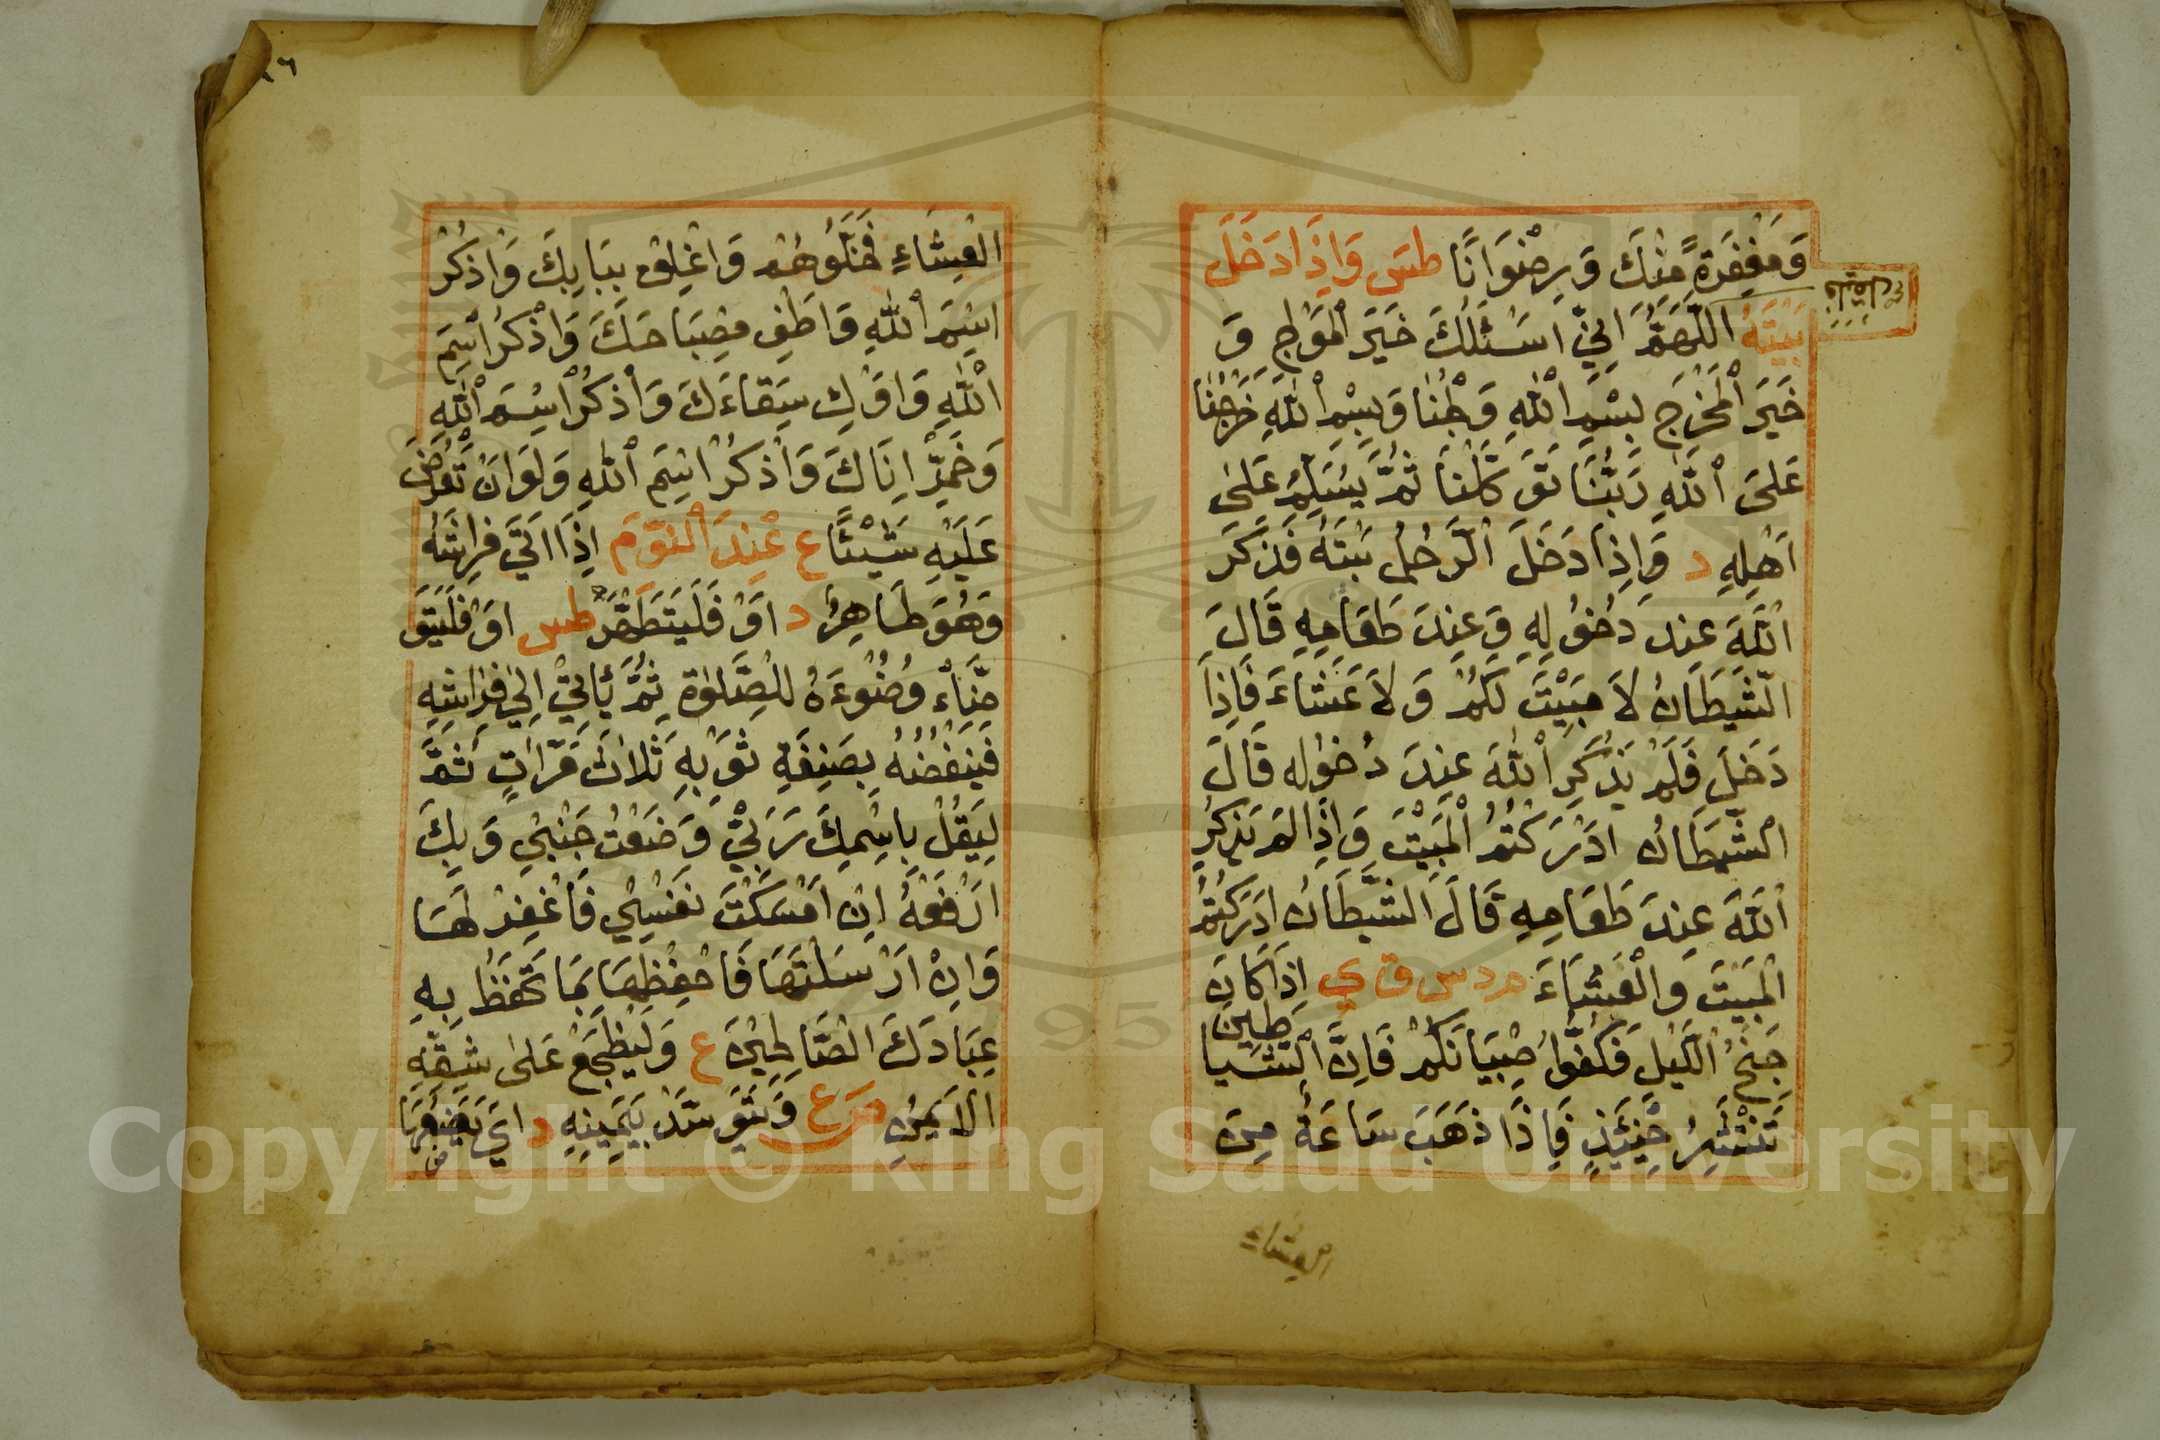 وَمَغْفِرَةً مِنْكَ وَرِضْوَانًا طس وَإِذَا دَخَلَ
بَيْتَهُ اَللّٰهُمَّ اِنِّي اَسْئَلُكَ خَيْرَ الْمَوْلِجِ وَ
فليقل صح
خَيْرَ الْمَخْرَجِ بِسْمِ اللّٰهِ وَلَجْنَا وَبِسْمِ اللّٰهِ خَرَجْنَا
عَلَى اللّٰهِ رَبِّنَا تَوَكَّلْنَا ثُمَّ يُسَلِّمُ عَلٰى
اَهْلِهِ د وَاِذَا دَخَلَ الرَّجُلُ بَيْتَهُ فَذَكَرَ
اللّٰهَ عِنْدَ دُخُولِهِ وَعِنْدَ طَعَامِهِ قَالَ
الشَّيْطَانُ لَا مَبِيْتَ لَكُمْ وَلَا عَشَاءَ فَاِذَا
دَخَلَ فَلَمْ يَذْكُرِ اللّٰهَ عِنْدَ دُخُولِهِ قَالَ
الشَّيْطَانُ اَدْرَكْتُمُ الْمَبِيْتَ وَاِذَا لَمْ يَذْكُرِ
اللّٰهَ عِنْدَ طَعَامِهِ قَالَ الشَّيْطَانُ اَدْرَكْتُمُ
الْمَبِيْتَ وَالْعَشَاءَ م د س ق ي اِذَا كَانَ
جِنْحُ اللَّيْلِ فَكُفُّوا صِبْيَانَكُمْ فَاِنَّ الشَّيَاطِيْنَ
تَنْتَشِرُ حِيْنَئِذٍ فَاِذَا ذَهَبَ سَاعَةٌ مِنَ
العشاء
٦
الْعِشَاءِ فَخَلُّوهُمْ وَاَغْلِقْ بَابَكَ وَاذْكُرِ
اسْمَ اللّٰهِ وَاَطْفِ مِصْبَاحَكَ وَاذْكُرِ اسْمَ
اللّٰهِ وَاَوْكِ سِقَاءَكَ وَاذْكُرِ اسْمَ اللّٰهِ
وَخَمِّرْ اِنَاكَ وَاذْكُرِ اسْمَ اللّٰهِ وَلَوْ اَنْ تَعْرُضَ
عَلَيْهِ شَيْئًا ع عِنْدَ النَّوْمِ اِذَا اَتَى فِرَاشَهُ
وَهُوَ طَاهِرٌ د اَوْ فَلْيَتَطَهَّرْ طس اَوْ فَلْيَتَوَ
ضَّأْ وُضُوْءَهُ لِلصَّلٰوةِ ثُمَّ يَأْتِيْ اِلٰى فِرَاشِهِ
فَيَنْفُضُهُ بِصَنِفَةِ ثَوْبِهِ ثَلَاثَ مَرَّاتٍ ثُمَّ
لِيَقُلْ بِاسْمِكَ رَبِّيْ وَضَعْتُ جَنْبِيْ وَبِكَ
اَرْفَعُهُ اِنْ اَمْسَكْتَ نَفْسِيْ فَاغْفِرْ لَهَا
وَاِنْ اَرْسَلْتَهَا فَاحْفَظْهَا بِمَا تَحْفَظُ بِهِ
عِبَادَكَ الصَّالِحِيْنَ ع وَلْيَضْطَجِعْ عَلٰى شِقِّهِ
الْاَيْمَنِ م ع وَيَتَوَسَّدُ بِيَمِيْنِهِ د اَيْ يَضَعُهَا
Copyright © King Saud University